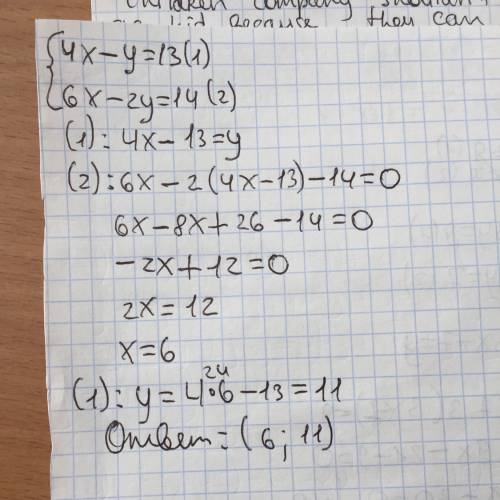 company shouldn't
than can
{4x-y=13(1)
6x-2y=14(2)
(1): 4x-13=y
(2): 6x-2(4x-13)-14=0
6x-8x+26-14=0
-2x+12=0
2x=12
x=6
24
(1): y=4•6-13=11
Ответ=(6;11)